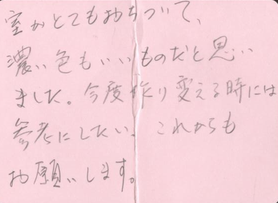 室がとてもおちついて、
濃い色もいいものだと思い
ました。今度作り変える時には
参考にしたい。これからも
お願いします。